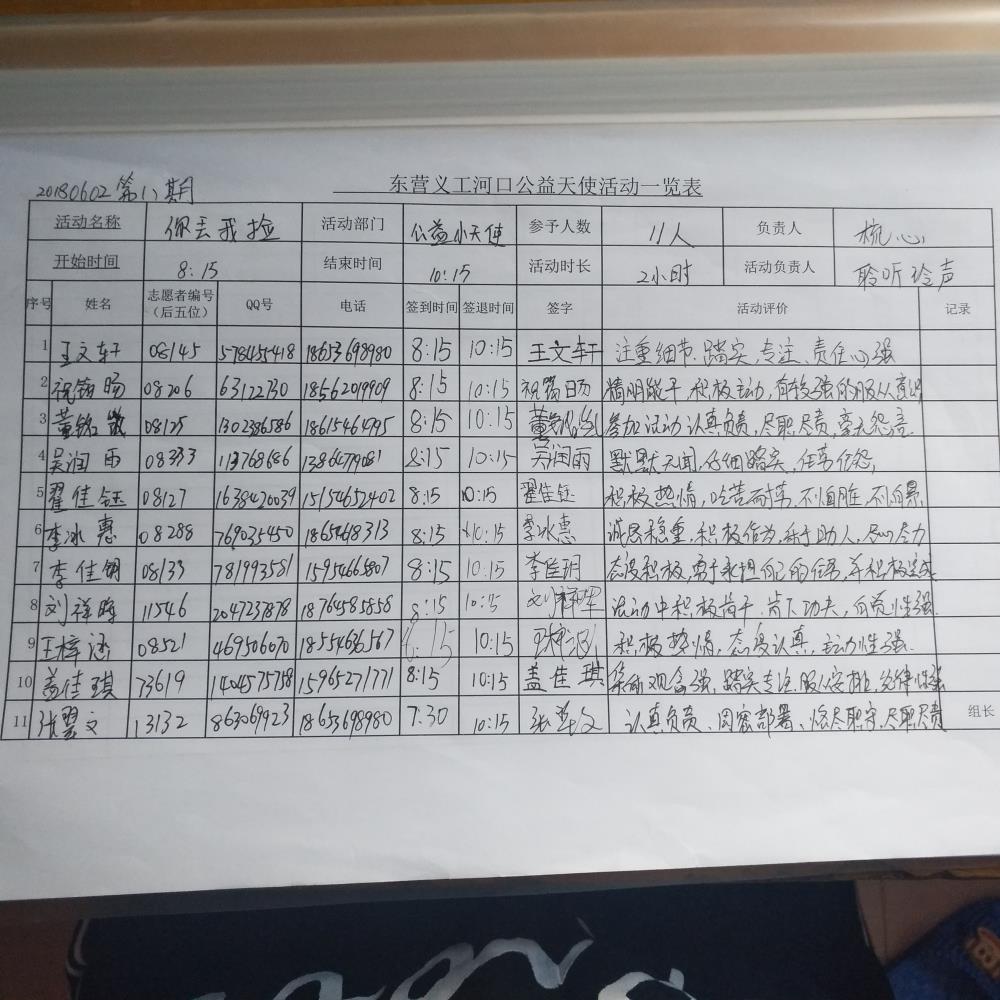 20180602 第11期 东营义工河口公益天使活动一览表
活动名称 你丢我捡 活动部门 公益小天使 参予人数 11人 负责人 梳心
开始时间 8:15 结束时间 10:15 活动时长 2小时 活动负责人 聆听玲声
序号 姓名 志愿者编号（后五位） QQ号 电话 签到时间 签退时间 签字 活动评价 记录
1 王文轩 08145 578455418 18653698980 8:15 10:15 王文轩 注重细节、踏实、专注、责任心强
2 祝铭旸 08206 63122730 18562019909 8:15 10:15 祝铭旸 精明能干，积极主动，有较强的服从意识
3 董铭 08125 1302386586 18615461495 8:15 10:15 董铭 参加活动认真负责，尽职尽责，毫无怨言.
4 吴润雨 08333 113768686 1386479081 8:15 10:15 吴润雨 默默无闻，仔细踏实，任劳任怨，
5 翟佳钰 08127 1638420039 15154652402 8:15 10:15 翟佳钰 积极热情，吃苦耐劳，不怕脏，不怕累
6 李冰惠 08288 769035450 1865468313 8:15 10:15 李冰惠 诚恳稳重，积极作为，乐于助人，尽心尽力
7 李佳玥 08133 781993581 15954665807 8:15 10:15 李佳玥 态度积极，勇于承担自己的任务，并积极完成
8 刘祥晖 11546 2047237878 18764585858 8:15 10:15 刘祥晖 活动中积极肯干，肯下功夫，自觉性强.
9 王梓涵 08521 469506070 18554636567 10:15 积极热情，态度认真，主动性强.
10 盖佳琪 73619 1404575758 15965271771 8:15 10:15 盖佳琪 集体观念强，踏实专注，服从安排，纪律性强
11 张翌文 13132 863069923 18653698980 7:30 10:15 张翌文 认真负责、周密部署、恪尽职守、尽职尽责 组长